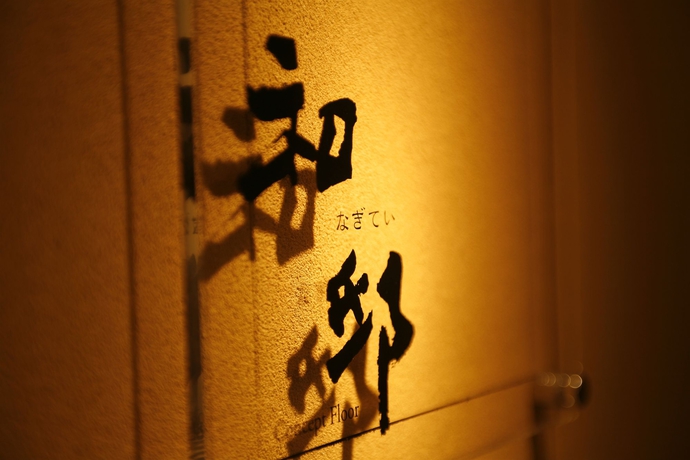 和邸
なぎてい
Concept Floor